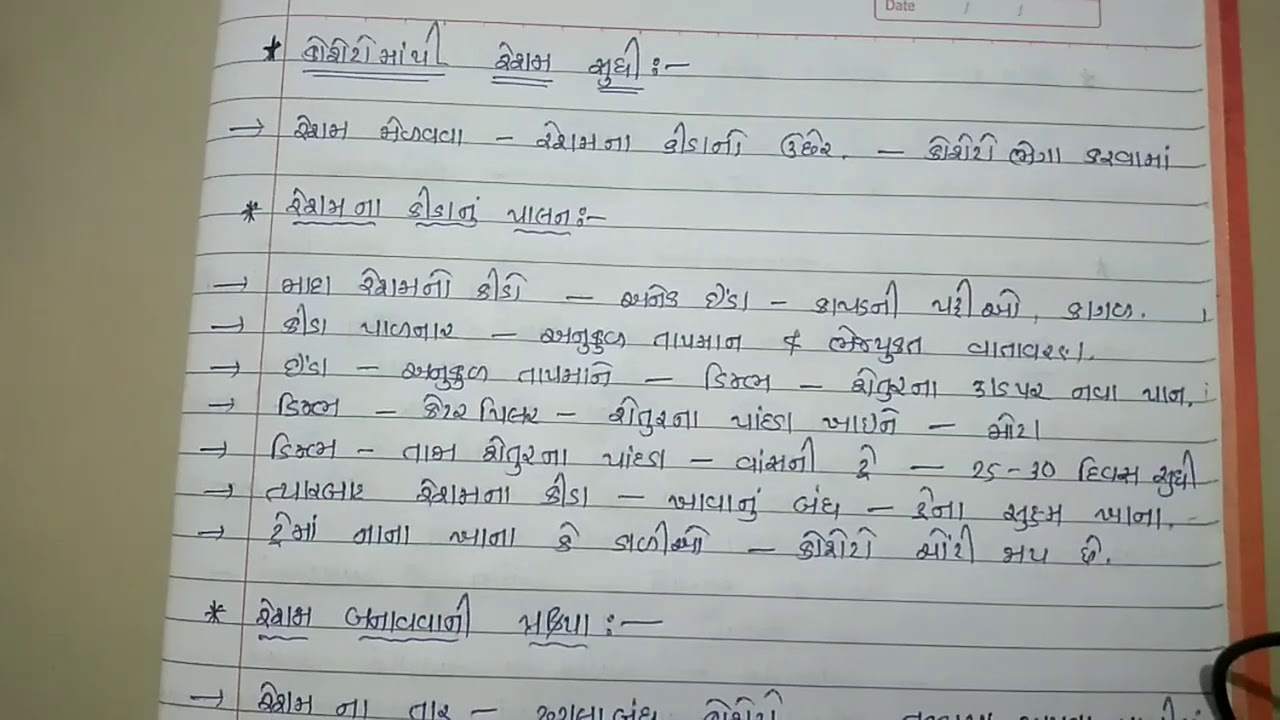 Date / /
* કોશેટોમાંથી રેશમ સુધી :-
→ રેશમ મેળવવા - રેશમના કીડાની ઉછેર. - કોશેટો ભેગા કરવામાં
* રેશમના કીડાનું પાલન :-
→ માદા રેશમની કીડી - અનેક ઈંડા - કાપડની પટ્ટીઓ, કાગળ.
→ કીડા પાળનાર - અનુકુળ તાપમાન & ભેજયુક્ત વાતાવરણ.
→ ઈંડા - અનુકુળ તાપમાને - ડિમ્ભ - શેતુરના ઝાડપર નવા પાન.
→ ડિમ્ભ - કેટરપિલર - શેતુરના પાંદડા ખાઈને - મોટા
→ ડિમ્ભ - તાજા શેતુરના પાંદડા - વાંસની ટ્રે - 25-30 દિવસ સુધી
→ ત્યારબાદ રેશમના કીડા - ખાવાનું બંધ - ટ્રેના સુક્ષ્મ ખાના.
→ ટ્રેમાં નાના ખાના કે ડાળીઓ - કોશેટો ચોંટી જાય છે.
* રેશમ બનાવવાની પ્રક્રિયા :-
→ રેશમ ના તાર - કોશેટો